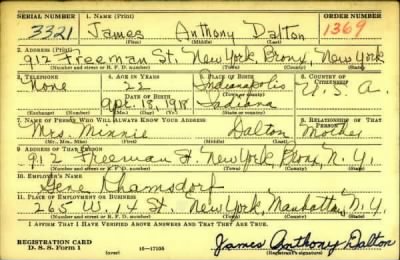 SERIAL NUMBER 1. NAME (Print) ORDER NUMBER
3321 James Anthony Dalton 1369
(First) (Middle) (Last)
2. ADDRESS (Print)
912 Freeman St. New York, Bronx, New York
(Number and street or R. F. D. number) (Town) (County) (State)
3. TELEPHONE 4. AGE IN YEARS 5. PLACE OF BIRTH 6. COUNTRY OF CITIZENSHIP
None 22 Indianapolis U. S. A.
DATE OF BIRTH (Town or county)
Apr. 18, 1918 Indiana
(Mo.) (Day) (Yr.) (State or country)
7. NAME OF PERSON WHO WILL ALWAYS KNOW YOUR ADDRESS 8. RELATIONSHIP OF THAT PERSON
Mrs. Minnie Dalton Mother
(Mr., Mrs., Miss) (First) (Middle) (Last)
9. ADDRESS OF THAT PERSON
912 Freeman St. New York, Bronx, N. Y.
(Number and street or R. F. D. number) (Town) (County) (State)
10. EMPLOYER'S NAME
Gene
11. PLACE OF EMPLOYMENT OR BUSINESS
265 W. 14 St. New York, Manhattan, N. Y.
(Number and street or R. F. D. number) (Town) (County) (State)
I AFFIRM THAT I HAVE VERIFIED ABOVE ANSWERS AND THAT THEY ARE TRUE.
REGISTRATION CARD
D. S. S. Form 1 (over) 16—17105 James Anthony Dalton
(Registrant's signature)